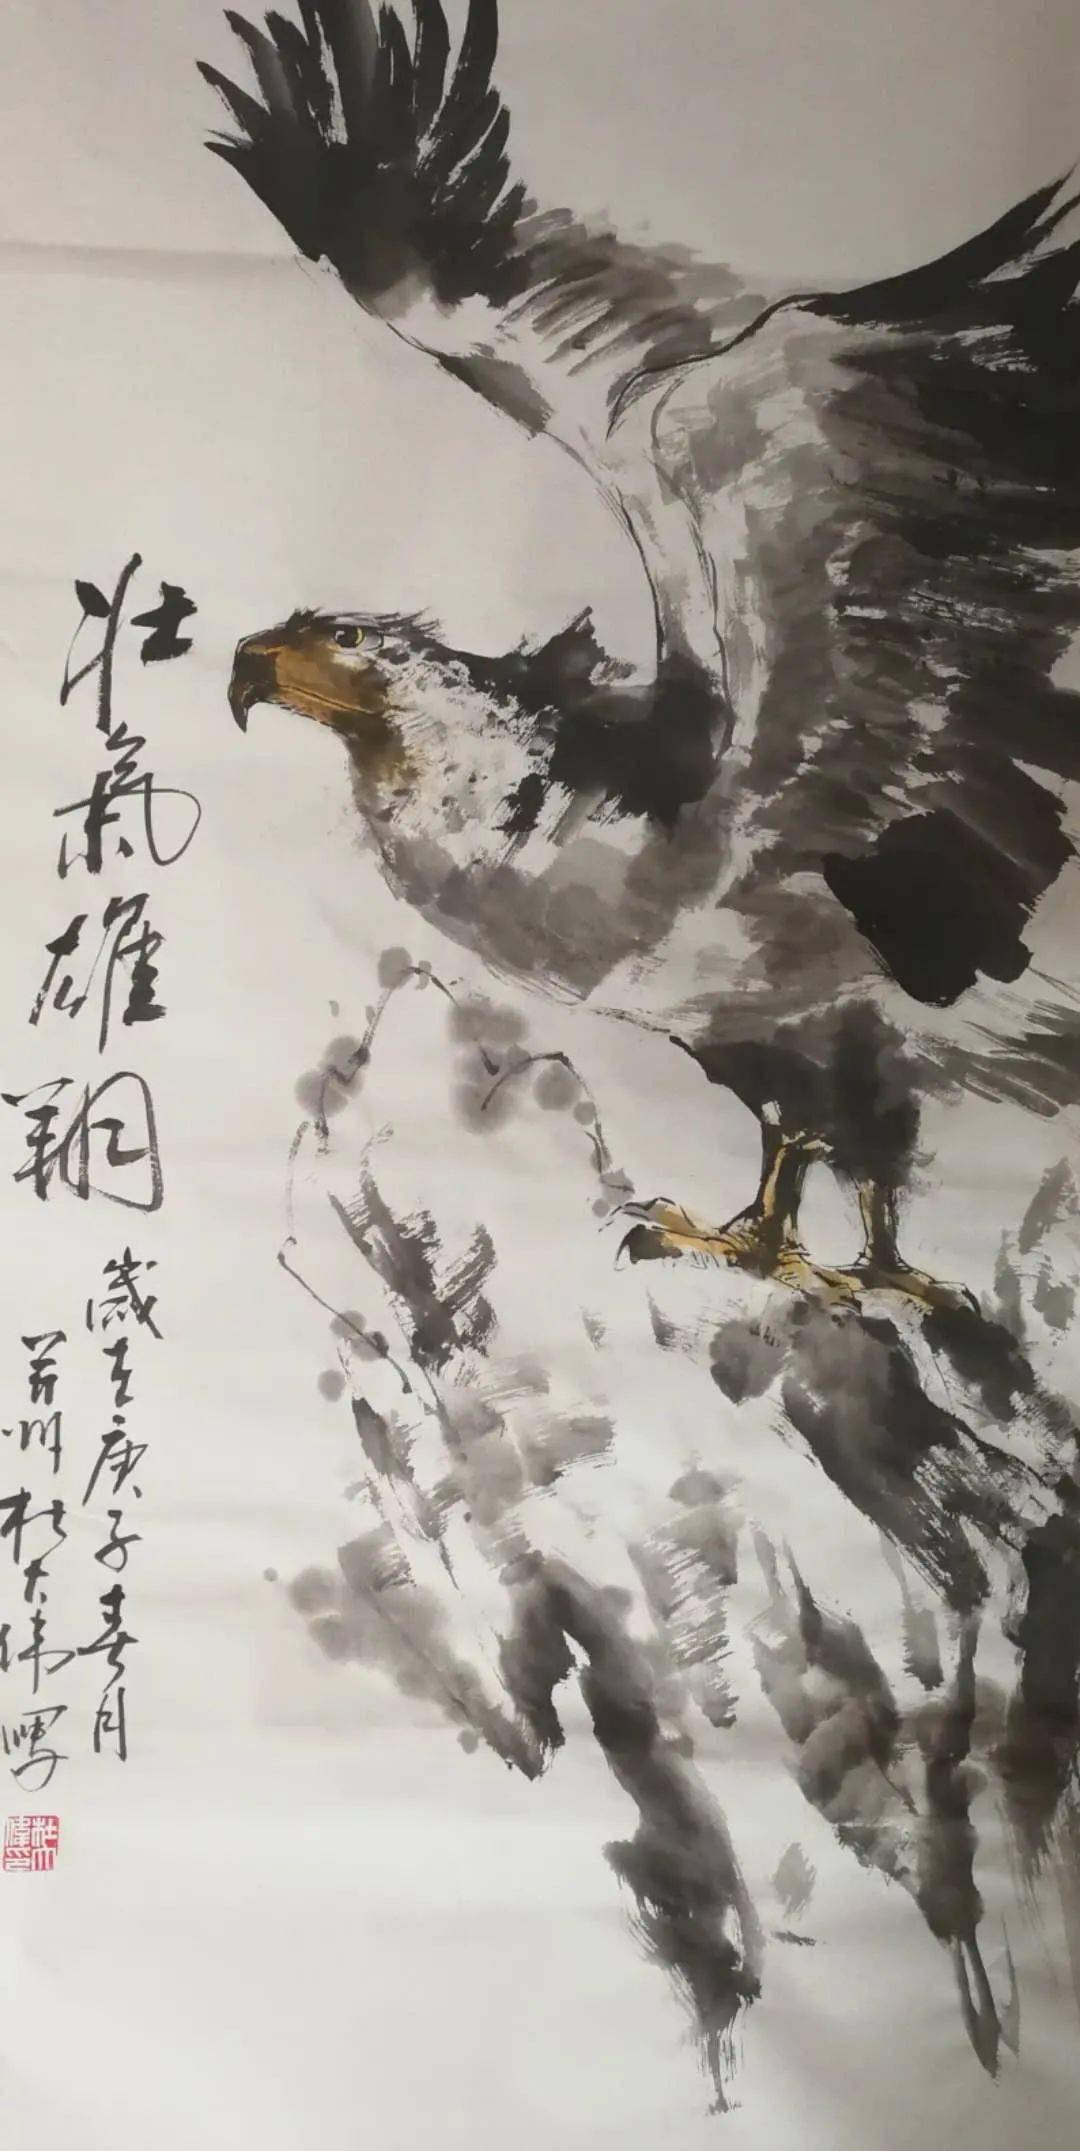 壮氣雄翔
歲在庚子春月
并州杜大伟写
杜大偉印